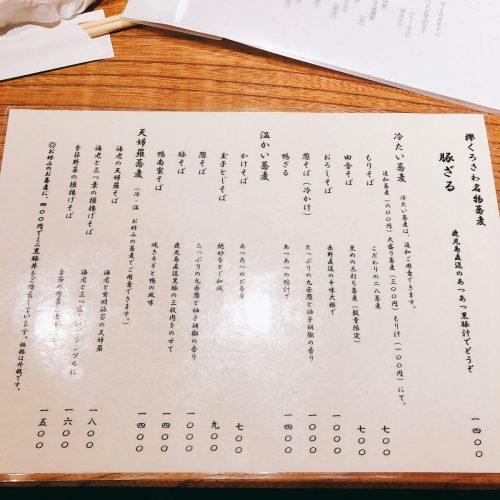 欅くろさわ名物蕎麦
豚ざる 鹿児島直送のあつあつ黒豚汁でどうぞ 一四〇〇
冷たい蕎麦 冷たい蕎麦は、追加ご用意できます。
追加蕎麦(六〇〇円)大盛り蕎麦(三〇〇円)もり汁(一〇〇円)にて。
もりそば こだわりの二八蕎麦 七〇〇
田舎そば 黒めの太打ち蕎麦(数量限定) 七〇〇
おろしそば 長野直送の辛味大根で 一〇〇〇
葱そば(冷かけ) たっぷりの九条葱と柚子胡椒の香り 一〇〇〇
鴨ざる あつあつの鴨汁で 一四〇〇
温かい蕎麦
かけそば あつあつのお蕎麦 七〇〇
玉子とじそば 絶妙なとじ加減 九〇〇
葱そば たっぷりの九条葱と柚子胡椒の香り 一〇〇〇
豚そば 鹿児島直送黒豚の三枚肉をのせて 一四〇〇
鴨南蛮そば 焼きネギと鴨の風味 一四〇〇
天婦羅蕎麦 (冷・温 お好みの蕎麦でご用意できます。)
海老の天婦羅そば 海老と有明海苔の天婦羅 一八〇〇
海老と三つ葉の掻揚げそば 海老と三つ葉 シンプルに 一六〇〇
季節野菜の掻揚げそば 季節の野菜 一五〇〇
◎お好みのお蕎麦に、四〇〇円でミニ黒豚丼をご用意 います。価格は外税です。